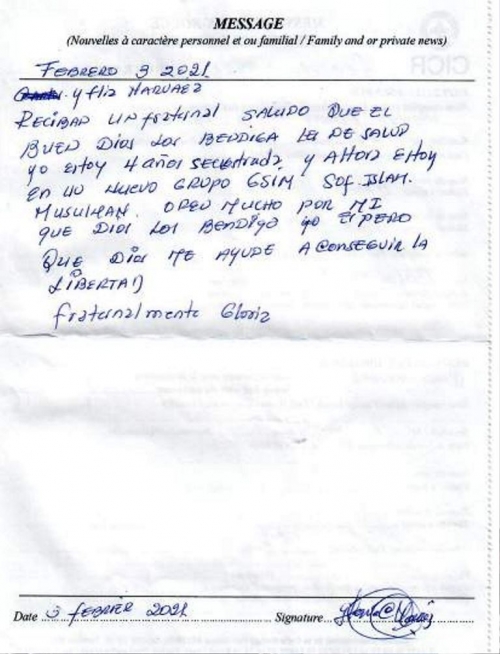 MESSAGE
(Nouvelles à caractère personnel et ou familial / Family and or private news)
FEBRERO 3 2021
y flia NARVAEZ
RECIBAN UN fraternal SALUDO QUE EL
BUEN DIOS LOS BENDIGA LES DE SALUD
yo estoy 4 años secuestrada y AHORA ESTOY
EN UN NUEVO GRUPO GSIM SOF. ISLAM.
MUSULMAN. OREN MUCHO POR MI
QUE DIOS LOS BENDIGA yo ESPERO
QUE DIOS ME AYUDE A CONSEGUIR LA
LIBERTAD
fraternalmente Gloria
Date 3 febrier 2021 Signature
CICR